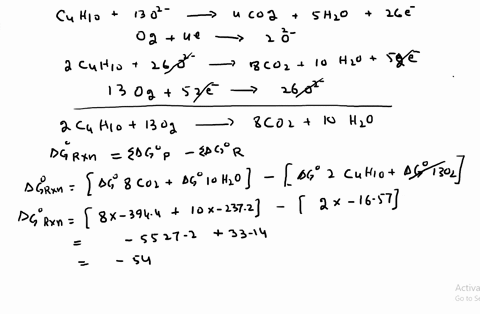 C4H10 + 13O²⁻ ⟶ 4CO2 + 5H2O + 26e⁻
O2 + 4e ⟶ 2O²⁻
2C4H10 + 26O²⁻ ⟶ 8CO2 + 10 H2O + 52e⁻
13O2 + 52e⁻ ⟶ 26O²⁻
2C4H10 + 13O2 ⟶ 8CO2 + 10 H2O
ΔG°Rxn = ΣΔG°P - ΣΔG°R
ΔG°Rxn = [ΔG° 8CO2 + ΔG° 10H2O] - [ΔG° 2C4H10 + ΔG° 13O2]
ΔG°Rxn = [8x-394.4 + 10x-237.2] - [2x-16.57]
= -5527.2 + 33.14
= -54
Activat
Go to Se